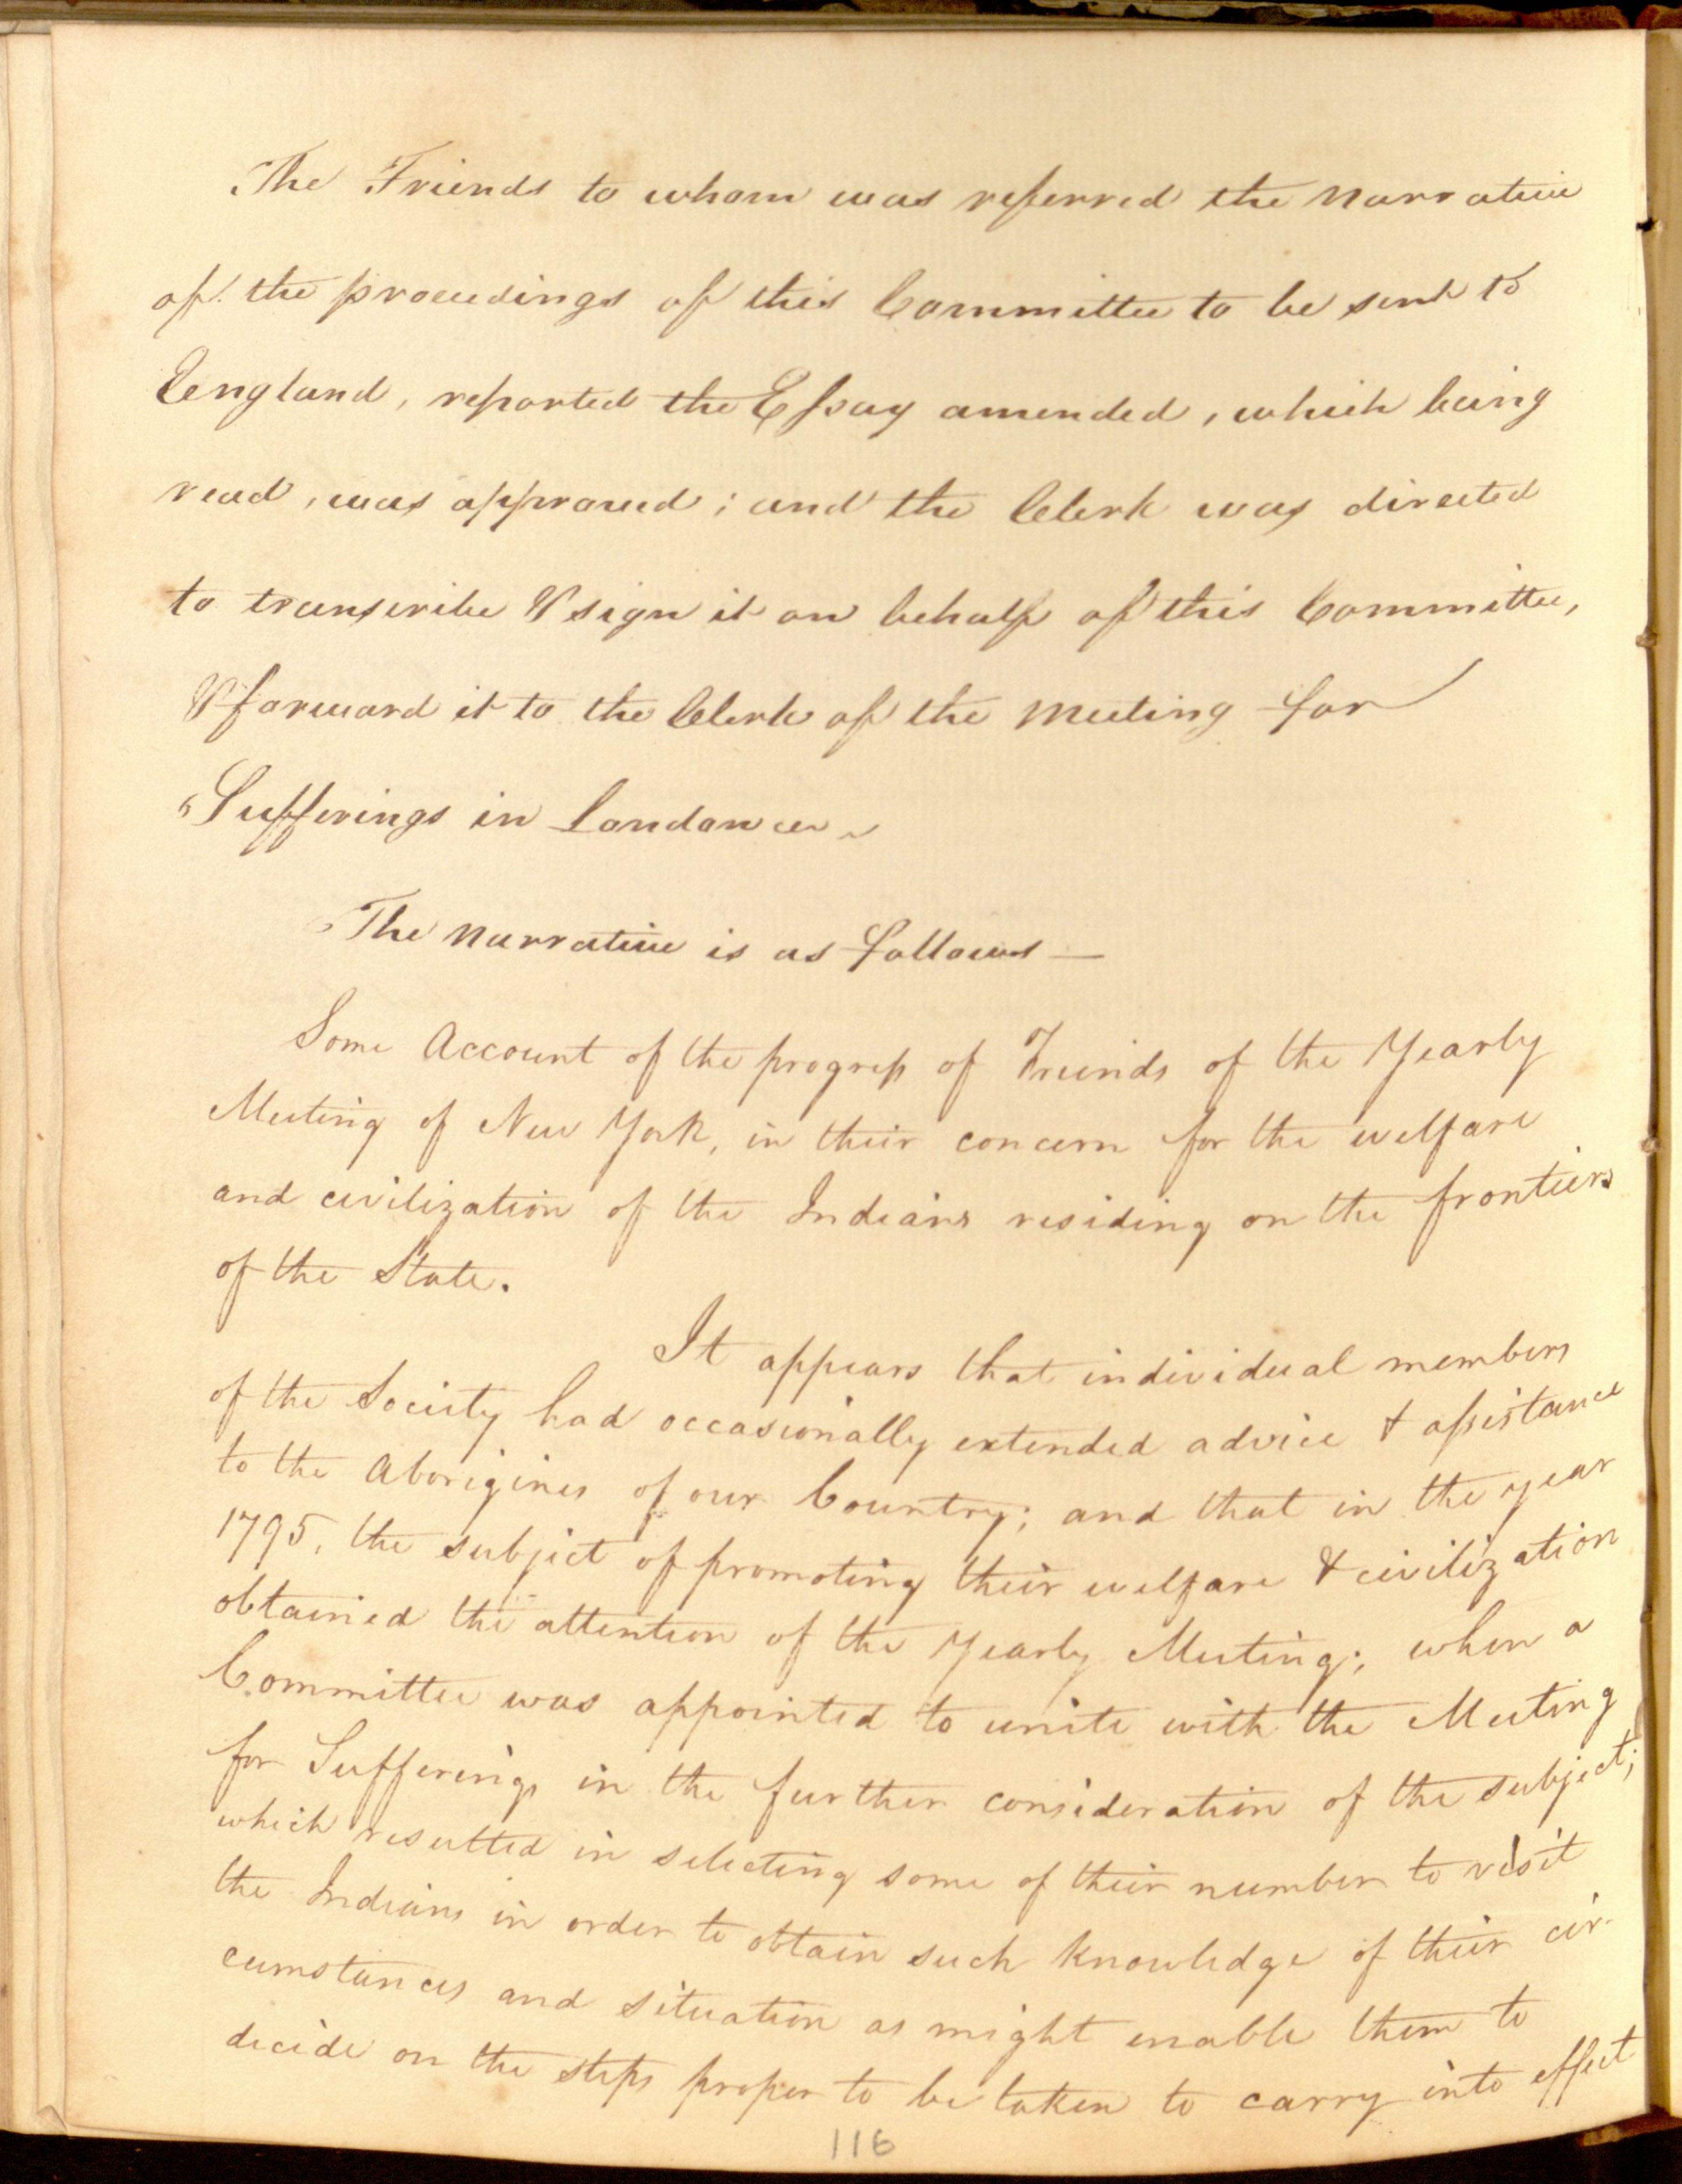 The Friends to whom was referred the Narrative
of the proceedings of this Committee to be sent to
England, reported the Essay amended, which being
read, was approved; and the Clerk was directed
to transcribe & sign it on behalf of this Committee,
& forward it to the Clerk of the Meeting for
Sufferings in London
The Narrative is as follows —
Some Account of the progress of Friends of the Yearly
Meeting of New York, in their concern for the welfare
and civilization of the Indians residing on the frontiers
of the State.
It appears that individual members
of the Society had occasionally extended advice & assistance
to the Aborigines of our Country; and that in the year
1795, the subject of promoting their welfare & civilization
obtained the attention of the Yearly Meeting; when a
Committee was appointed to unite with the Meeting
for Sufferings in the further consideration of the subject;
which resulted in selecting some of their number to visit
the Indians in order to obtain such knowledge of their cir-
cumstances and situation as might enable them to
decide on the steps proper to be taken to carry into effect
116